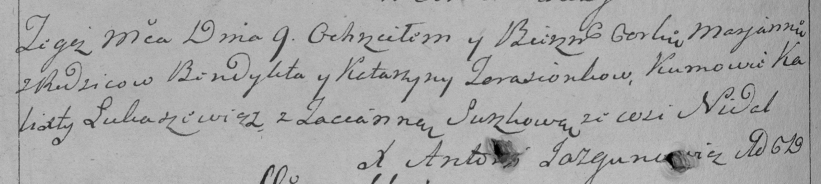 Tegoż Mca Dnia 9. Ochrzciłem y Bierzm Corkę Marjannę
z Rodzicow Bendykta y Katarzyny Tarasionkow, Kumowie Ka
listy Łukaszewicz z Taciānną Suszkową ze wsi Nidal
X Antoni